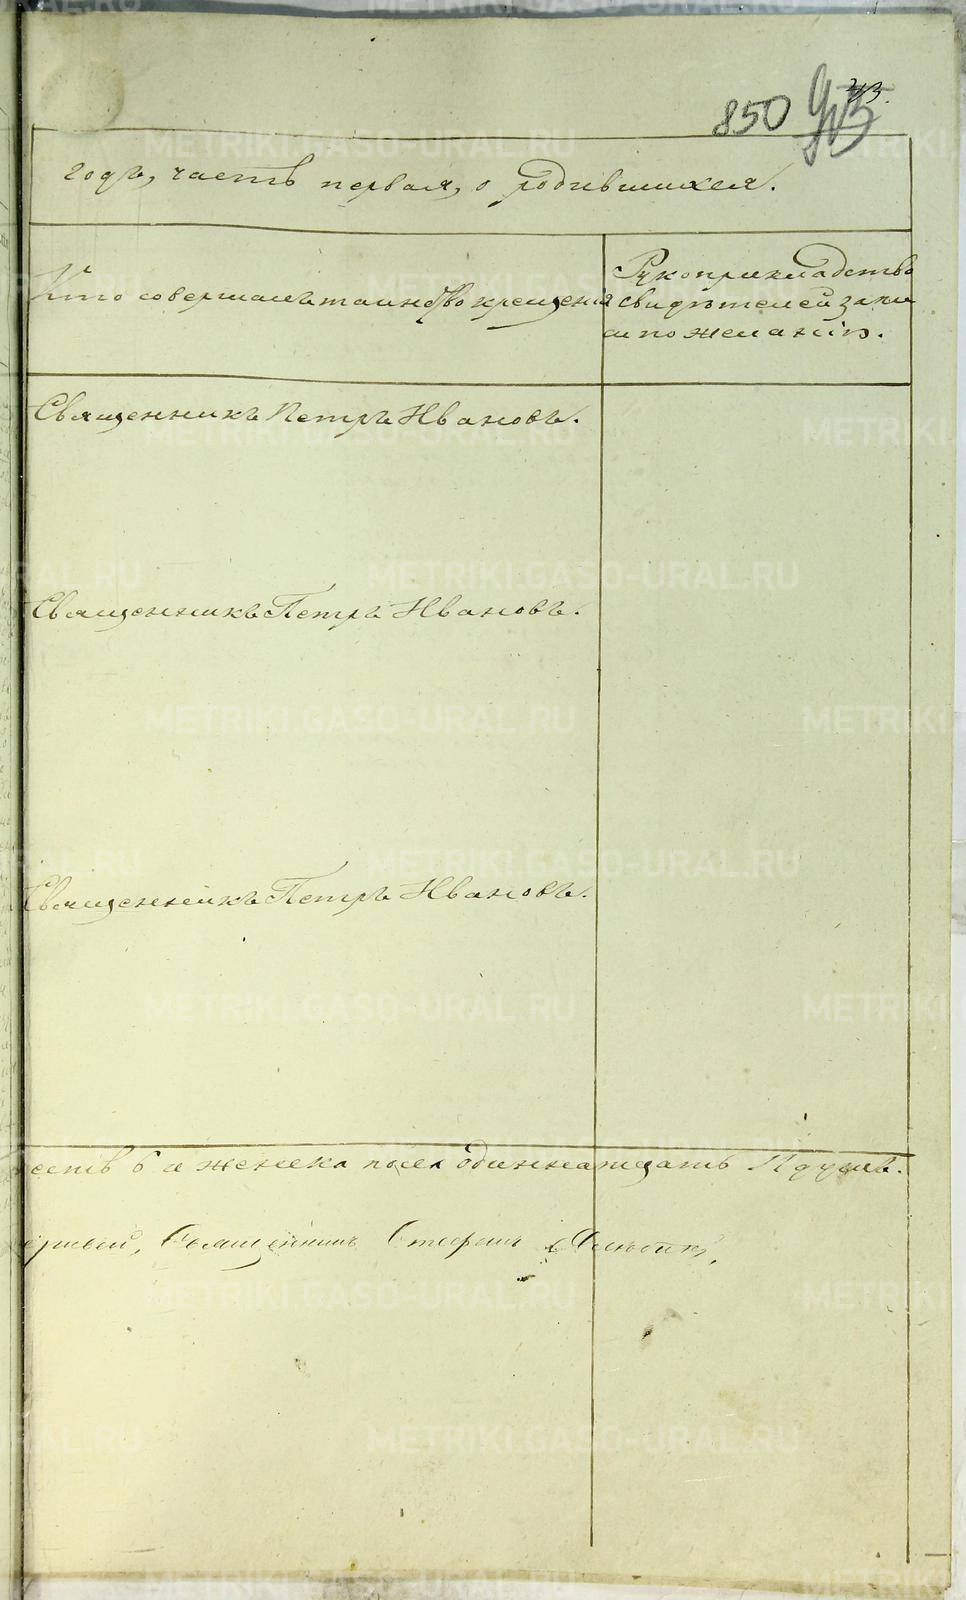 850
годъ, часть первая, о родившихся.
Кто совершалъ таинство крещенія
Рукоприкладство
свидѣтелей запи
си по желанію.
Священникъ Петръ Ивановъ.
Священникъ Петръ Ивановъ.
Священникъ Петръ Ивановъ.
6 а женска пола одиннатцать
Священникъ Стефанъ
METRIKI.GASO-URAL.RU